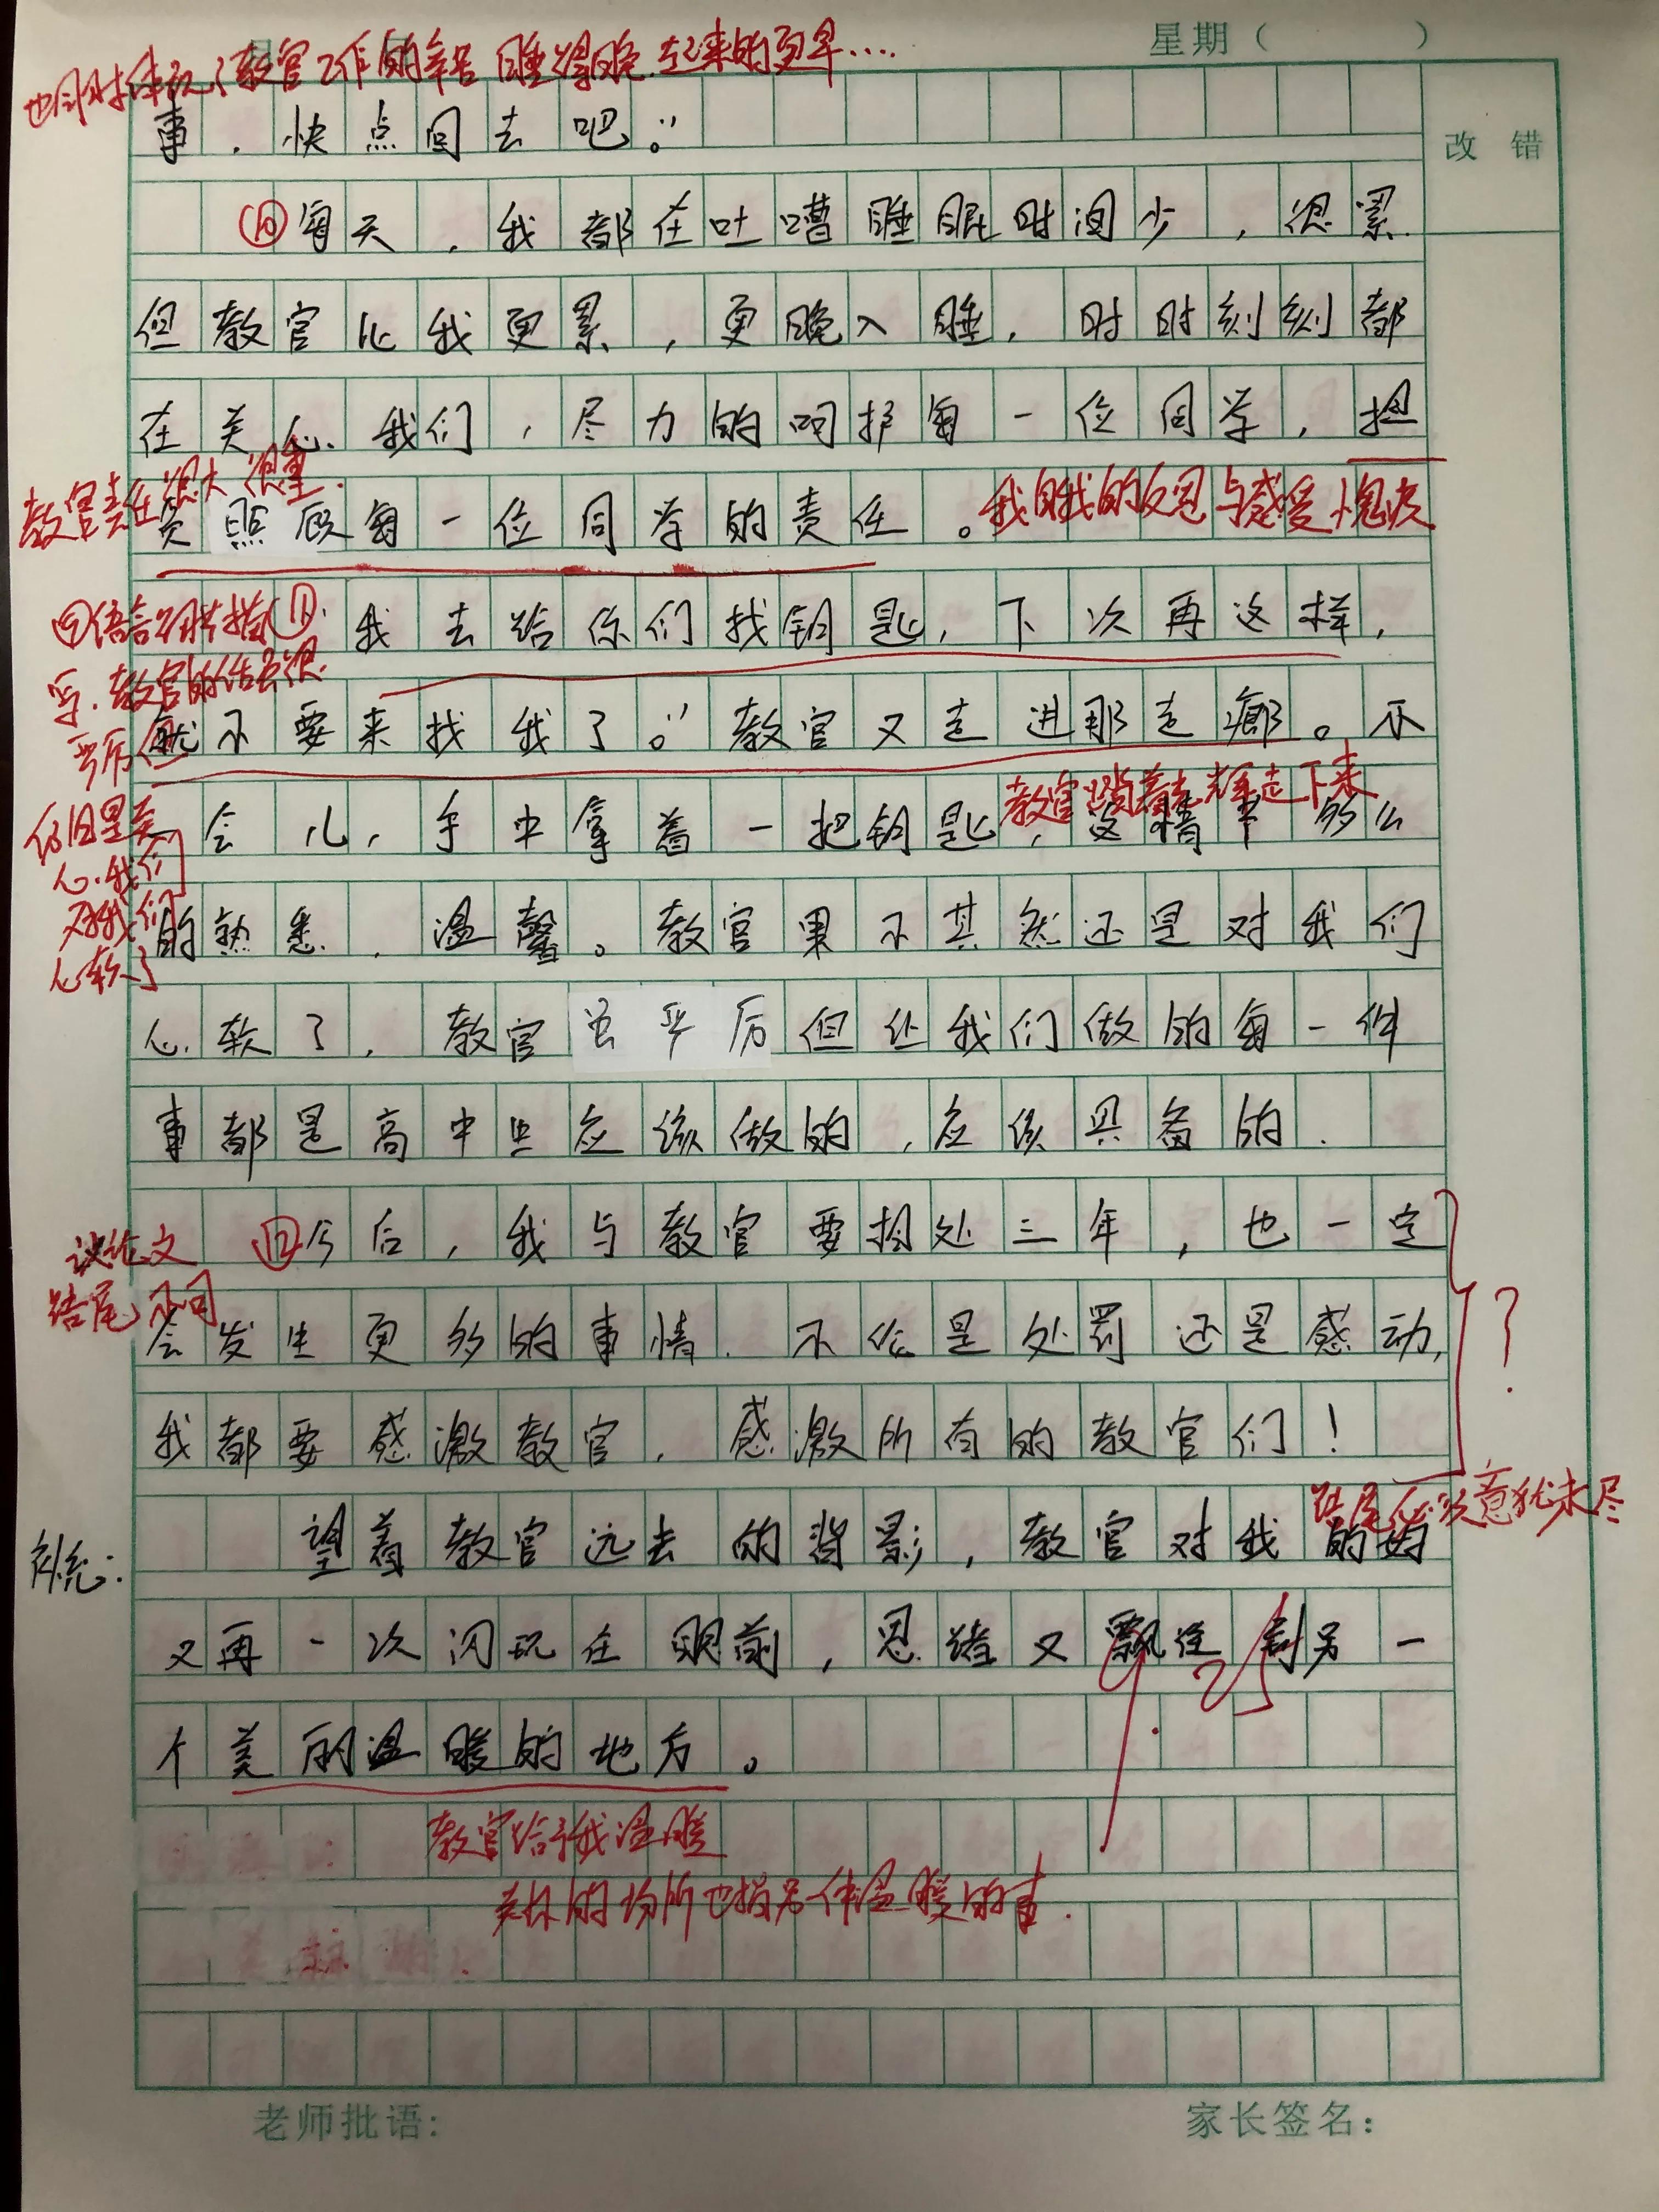 星期（　　　）
也同时体现了教官工作的辛苦 睡得晚.起来的更早....
事，快点回去吧。”
改 错
⑩每天，我都在吐嘈睡眠时间少，很累
但教官比我更累，更晚入睡，时时刻刻都
在关心我们，尽力的呵护每一位同学，担
教官责任很大 很重.
负照顾每一位同学的责任。
我自我的反思与感受 愧疚
⑪我去给你们找钥匙，下次再这样，
写.教官的话虽很
严厉但
就不要来找我了。”教官又走进那走廊。不
仍旧是关
心.我们
对我们
心软了
教官踏着光辉走下来
会儿，手中拿着一把钥匙，这情节多么
的熟悉，温馨。教官果不其然还是对我们
心软了，教官虽严厉但让我们做的每一件
事都是高中生应该做的，应该具备的.
议论文
结尾 不同
⑫今后，我与教官要相处三年，也一定
会发生更多的事情.不论是处罚还是感动，
?
我都要感激教官，感激所有的教官们！
意犹未尽
望着教官远去的背影，教官对我的好
又再一次闪现在眼前，思绪又飘进到另一
个美丽温暖的地方。
教官给予我温暖
关怀的场所也指另一件温暖的事.
老师批语：
家长签名：